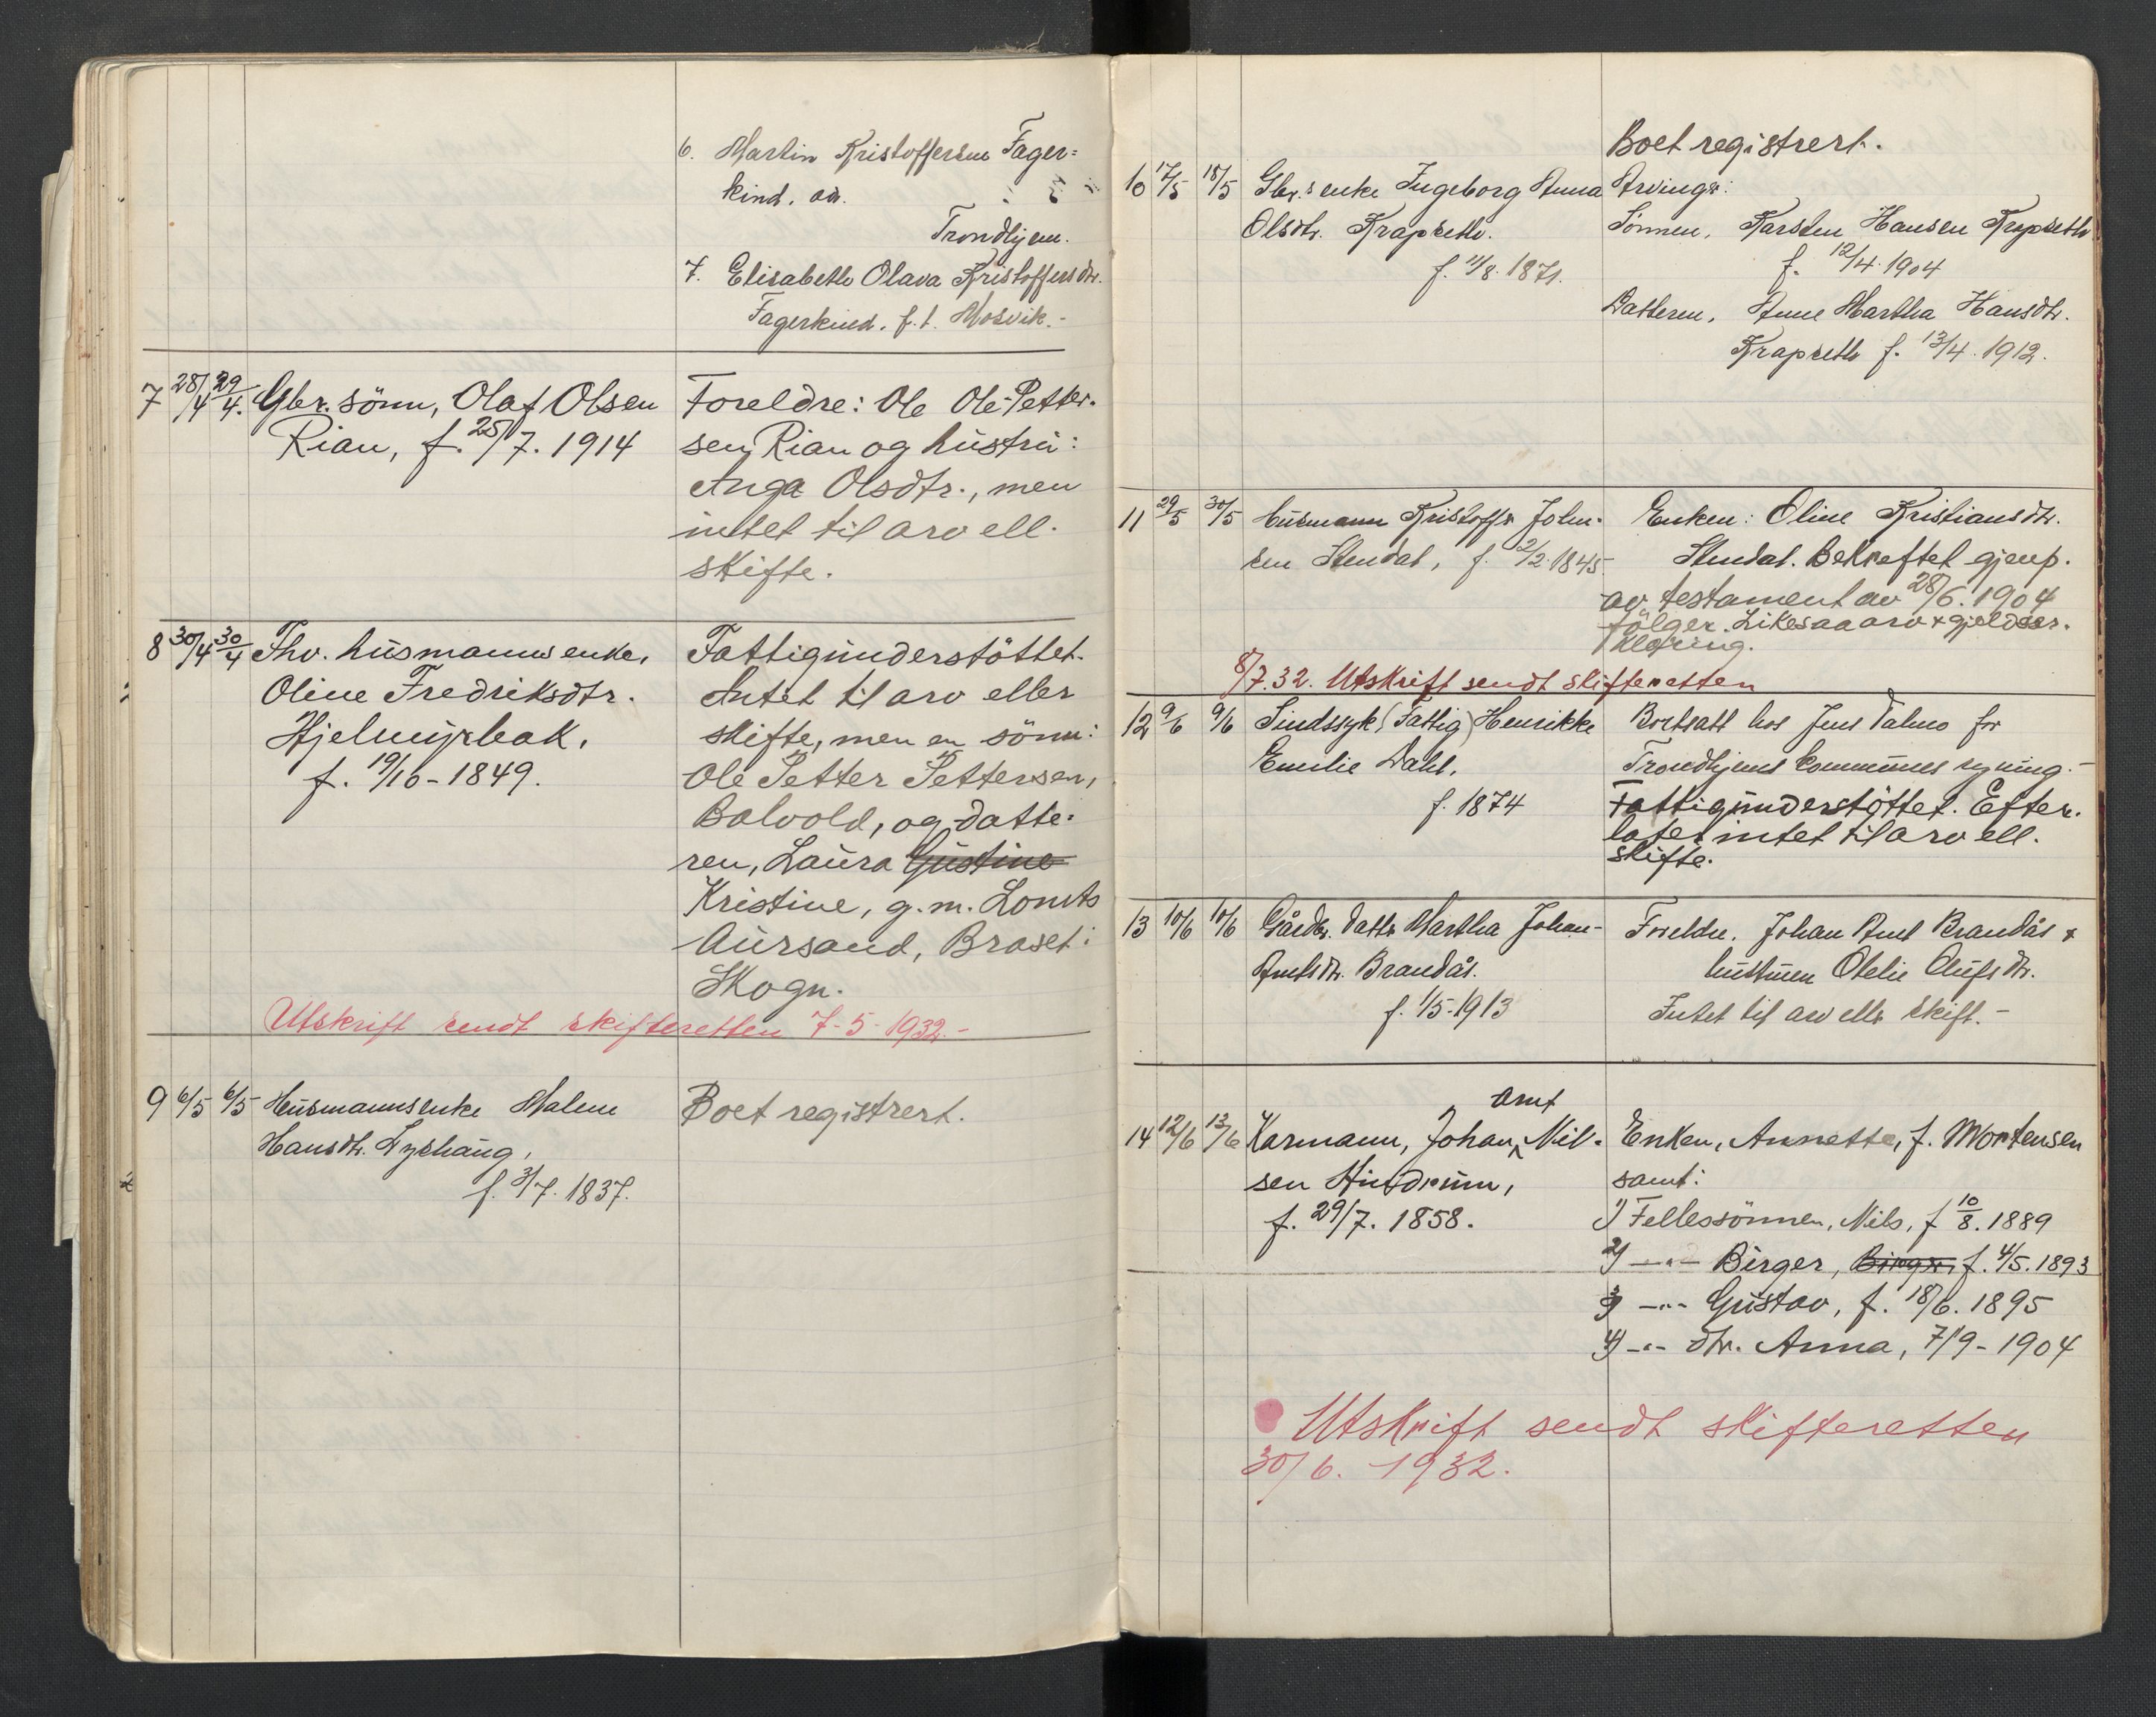 6. Martin Kristoffersen Fager=
kind. adr.
Trondhjem.
7. Elisabeth Olava Kristoffersdtr.
Fagerkind. f.t. Mosvik.-
7 28/4 29/4. Gbr. sönn, Olaf Olsen
Rian, f. 25/7. 1914
Foreldre: Ole Ole-Petter-
sen Rian og hustru:
Anga Olsdtr., men
intet til arv ell.
skifte.
8 30/4 30/4 Fhv. husmannsenke,
Oline Fredriksdtr.
f. 19/10-1849.
Fattigunderstöttet.
Intet til arv eller
skifte, men en sönn:
Ole Petter Pettersen,
Bolvold, og datte-
ren, Laura Gustine
Kristine, g.m. Lornts
Aursand, Braset i
Skogn.
Utskrift sendt skifteretten 7-5-1932.-
9 6/5 6/5 Husmannsenke Malene
Hansdtr. Lyshaug,
f. 3/7. 1837.
Boet registrert.
Boet registrert.
10 17/5 18/5 Gbr.s enke Ingeborg Anna
Olsdtr. Krapseth.
f. 11/8. 1871.
Arvinger:
Sönnen, Karsten Hansen Krapseth
f. 12/4. 1904
Datteren, Anne Martha Hansdtr.
Krapseth f. 13/4. 1912.
11 29/5 30/5 Husmann Kristoffer John-
sen Stendal, f. 2/2. 1845.
Enken: Oline Kristiansdtr.
Stendal. Bekreftet gjenp.
av testament av 28/6. 1904
fölger. Likesaa arv & gjeldser-
klæring.
8/7.32. Utskrift sendt skifteretten
12 9/6 9/6 Sindssyk (Fattig) Henrikke
Emilie Dahl.
f. 1874
Bortsatt hos Jens Dalmo for
Trondhjems kommunes regning.-
Fattigunderstöttet. Efter-
later intet til arv ell.
skifte.
13 10/6 10/6 Gårdbr. datter Martha Johan-
Arntsdtr. Brandås.
f. 1/5-1913
Foreldre. Johan Arnt Brandås &
hustruen Otelie Olufsdtr.
Intet til arv eller skift.-
Arnt
14 12/6 13/6 Karmann, Johan ^ Nil-
sen Hindrum,
f. 29/7. 1858.
Enken, Annette, f. Mortensen
samt:
1) Fellessönnen, Nils, f 10/8. 1889
2) -"- Birger, Birger, f. 4/5. 1893
3) -"- Gustav, f. 18/6. 1895
4) -"- dtr. Anna, 7/9-1904
Utskrift sendt skifteretten
30/6. 1932.